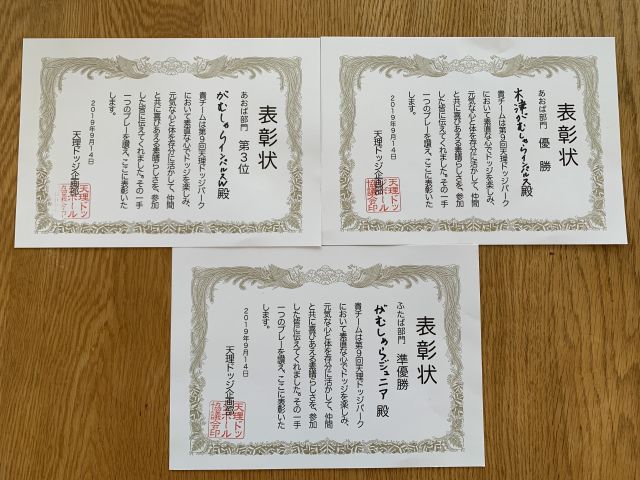 表彰状
あおば部門 第3位
がむしゃらインパルスW殿
貴チームは第9回天理ドッジパーク
において素直な心でドッジを楽しみ、
元気な心と体を存分に活かして、仲間
と共に喜びあえる素晴らしさを、参加
した皆に伝えてくれました。その一手
一つのプレーを讃え、ここに表彰いた
します。
2019年9月14日
天理ドッジ企画部
天理ドッ
ジボール
協議会印
表彰状
あおば部門 優勝
木津がむしゃらインパルス殿
貴チームは第9回天理ドッジパーク
において素直な心でドッジを楽しみ、
元気な心と体を存分に活かして、仲間
と共に喜びあえる素晴らしさを、参加
した皆に伝えてくれました。その一手
一つのプレーを讃え、ここに表彰いた
します。
2019年9月14日
天理ドッジ企画部
天理ドッ
ジボール
協議会印
表彰状
ふたば部門 準優勝
がむしゃらジュニア 殿
貴チームは第9回天理ドッジパーク
において素直な心でドッジを楽しみ、
元気な心と体を存分に活かして、仲間
と共に喜びあえる素晴らしさを、参加
した皆に伝えてくれました。その一手
一つのプレーを讃え、ここに表彰いた
します。
2019年9月14日
天理ドッジ企画部
天理ドッ
ジボール
協議会印